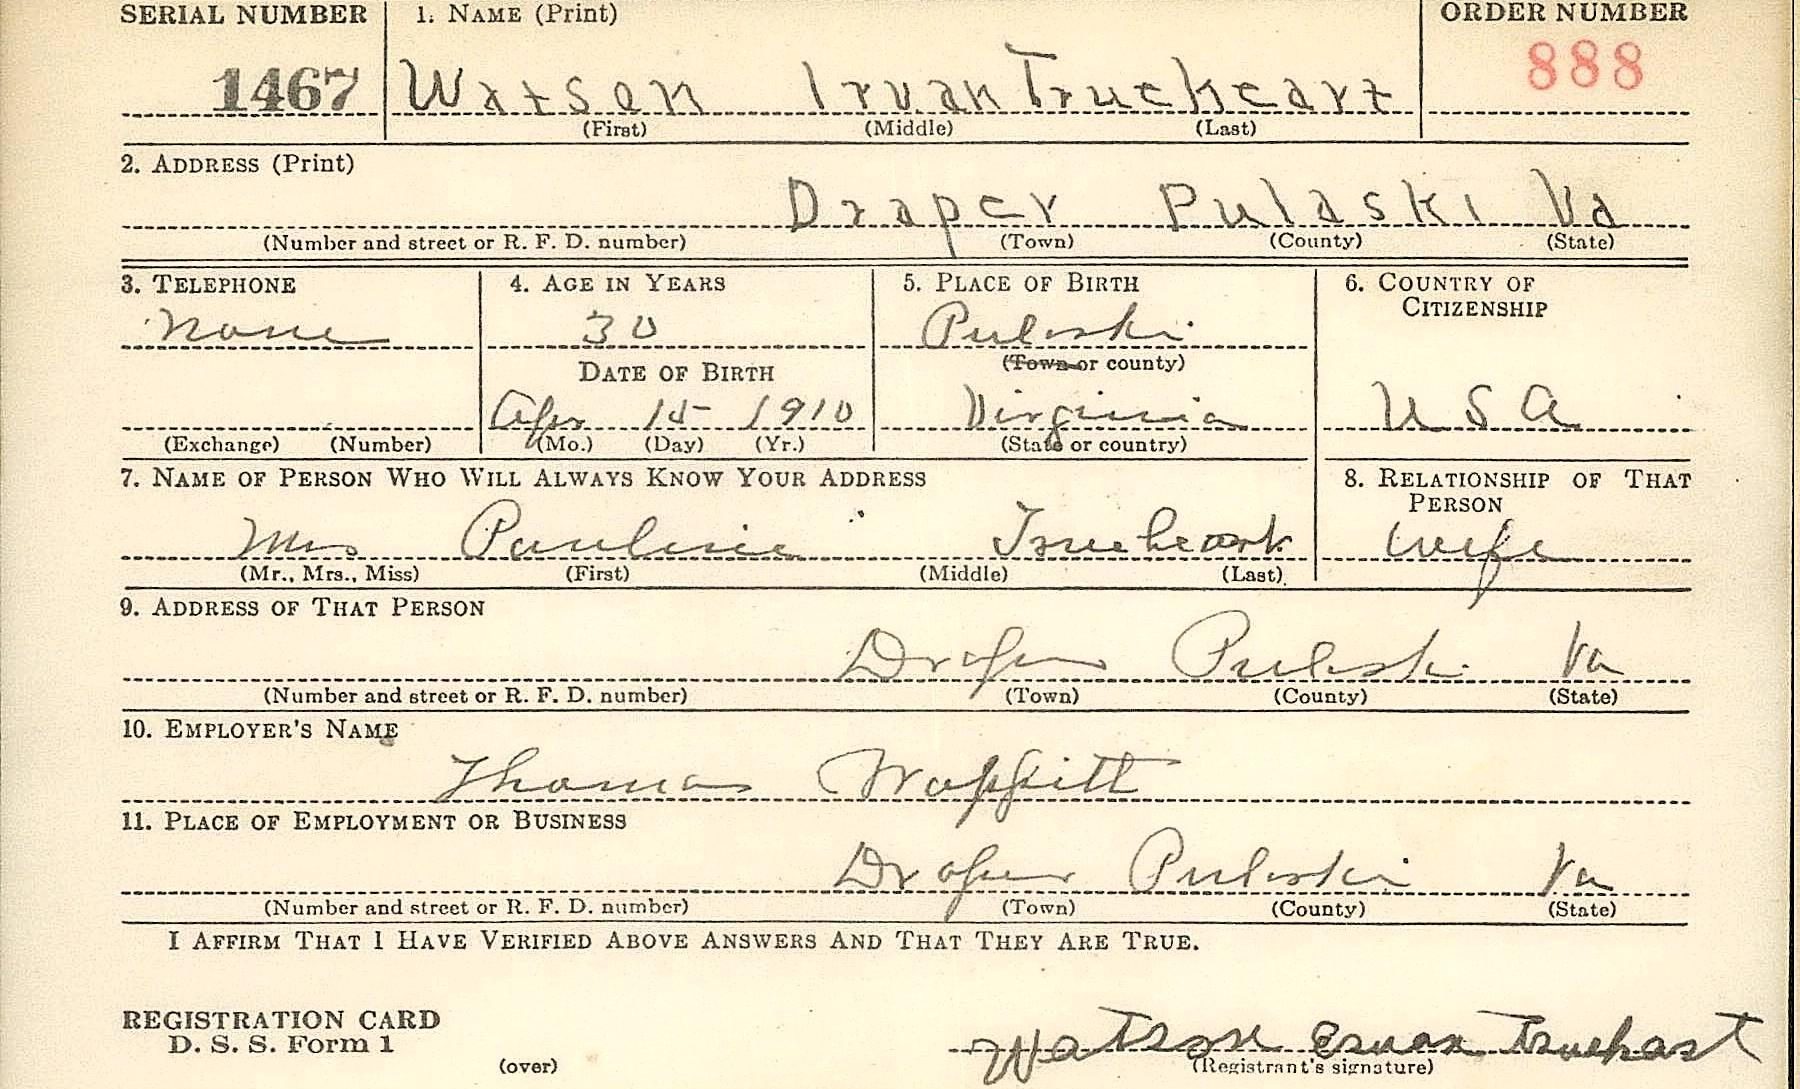 SERIAL NUMBER 1. NAME (Print) ORDER NUMBER
1467 Watson Irvan Trueheart 888
(First) (Middle) (Last)
2. ADDRESS (Print)
Draper Pulaski Va
(Number and street or R. F. D. number) (Town) (County) (State)
3. TELEPHONE 4. AGE IN YEARS 5. PLACE OF BIRTH 6. COUNTRY OF
CITIZENSHIP
None 30 Pulaski
(Town or county)
DATE OF BIRTH
Apr 15 1910 Virginia U S A
(Exchange) (Number) (Mo.) (Day) (Yr.) (State or country)
7. NAME OF PERSON WHO WILL ALWAYS KNOW YOUR ADDRESS 8. RELATIONSHIP OF THAT
PERSON
Mrs Pauline Trueheart wife
(Mr., Mrs., Miss) (First) (Middle) (Last)
9. ADDRESS OF THAT PERSON
Draper Pulaski Va
(Number and street or R. F. D. number) (Town) (County) (State)
10. EMPLOYER'S NAME
Thomas
11. PLACE OF EMPLOYMENT OR BUSINESS
Draper Pulaski Va
(Number and street or R. F. D. number) (Town) (County) (State)
I AFFIRM THAT I HAVE VERIFIED ABOVE ANSWERS AND THAT THEY ARE TRUE.
REGISTRATION CARD
D. S. S. Form 1 Watson Ervan Truehart
(over) (Registrant's signature)